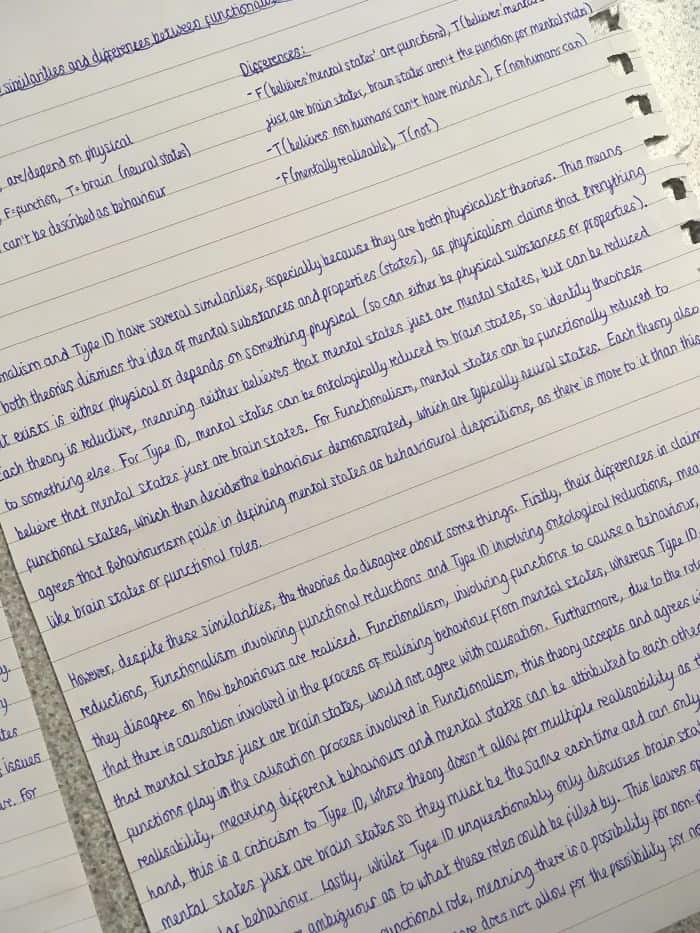 similarities and differences between functional
Differences:
- F(believes 'mental states' are functions), T(believes 'mental
just are brain states, brain states aren't the function for mental states)
- T(believes non humans can't have minds), F(nonhumans can)
- F(mentally realisable), T(not)
are/depend on physical
F=function, T=brain (neural states)
can't be described as behaviour
nalism and Type ID have several similarities, especially because they are both physicalist theories. This means
both theories dismiss the idea of mental substances and properties (states), as physicalism claims that everything
t exists is either physical or depends on something physical (so can either be physical substances or properties).
Each theory is reductive, meaning neither believes that mental states just are mental states, but can be reduced
to something else. For Type ID, mental states can be ontologically reduced to brain states, so identity theorists
believe that mental states just are brain states. For Functionalism, mental states can be functionally reduced to
functional states, which then decides the behaviour demonstrated, which are typically neural states. Each theory also
agrees that Behaviourism fails in defining mental states as behavioural dispositions, as there is more to it than this
like brain states or functional roles.
However, despite these similarities, the theories do disagree about some things. Firstly, their differences in claim
reductions, Functionalism involving functional reductions and Type ID involving ontological reductions, mea
they disagree on how behaviours are realised. Functionalism, involving functions to cause a behaviour,
that there is causation involved in the process of realising behaviour from mental states, whereas Type ID
that mental states just are brain states, would not agree with causation. Furthermore, due to the role
functions play in the causation process involved in Functionalism, this theory accepts and agrees w
realisability, meaning different behaviours and mental states can be attributed to each other
hand, this is a criticism to Type ID, whose theory doesn't allow for multiple realisability as t
mental states just are brain states so they must be the same each time and can only
lar behaviour. Lastly, whilst Type ID unquestionably only discusses brain sta
ambiguous as to what these roles could be filled by. This leaves op
unctional role, meaning there is a possibility for non-
does not allow for the possibility for no
y
y
tes
issues
ve. For